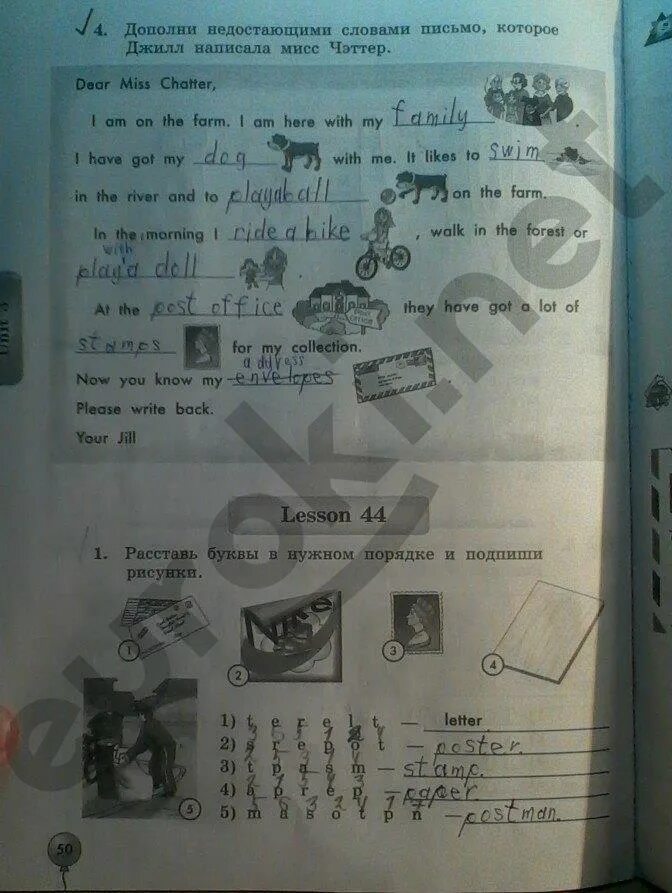 4. Дополни недостающими словами письмо, которое
Джилл написала мисс Чэттер.
Dear Miss Chatter,
I am on the farm. I am here with my family .
I have got my dog with me. It likes to swim
in the river and to play a ball on the farm.
In the morning I ride a bike , walk in the forest or
with
play a doll .
At the post office they have got a lot of
POST OFFICE
stamps for my collection.
address
Now you know my envelopes .
Please write back.
Your Jill
Unit 3
Lesson 44
1. Расставь буквы в нужном порядке и подпиши
рисунки.
1
2
3
4
5
1) t e r e l t – letter
2) s r e p o t – poster.
3) t p a s m – stamp.
4) a p r e p – paper.
5) m a s o t p n – postman.
50
euroki.net